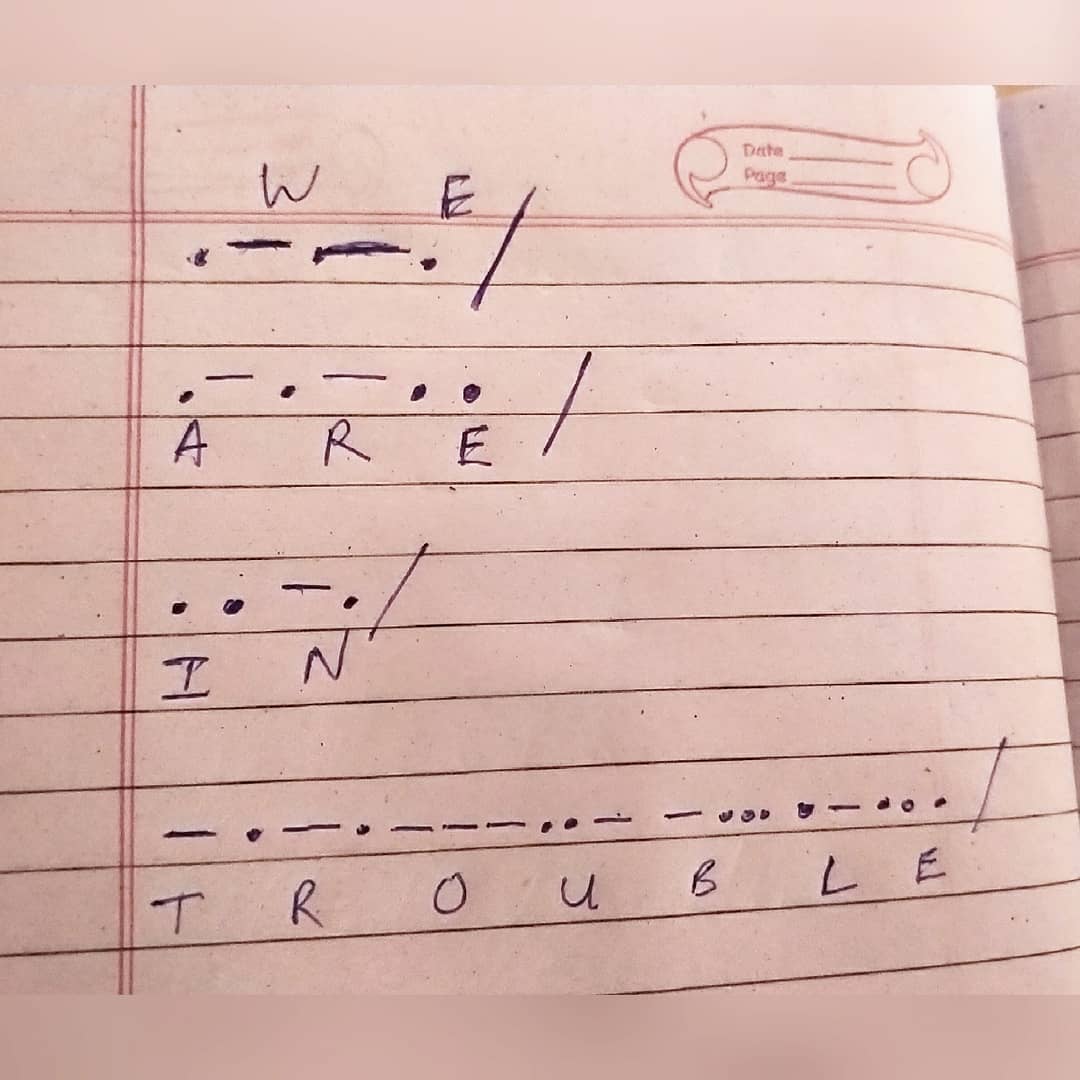 Date
Page
W E
. — — . /
. — . — . . /
A R E
. . — . /
I N
— . — . — — — . . — — . . . . — . . . /
T R O U B L E